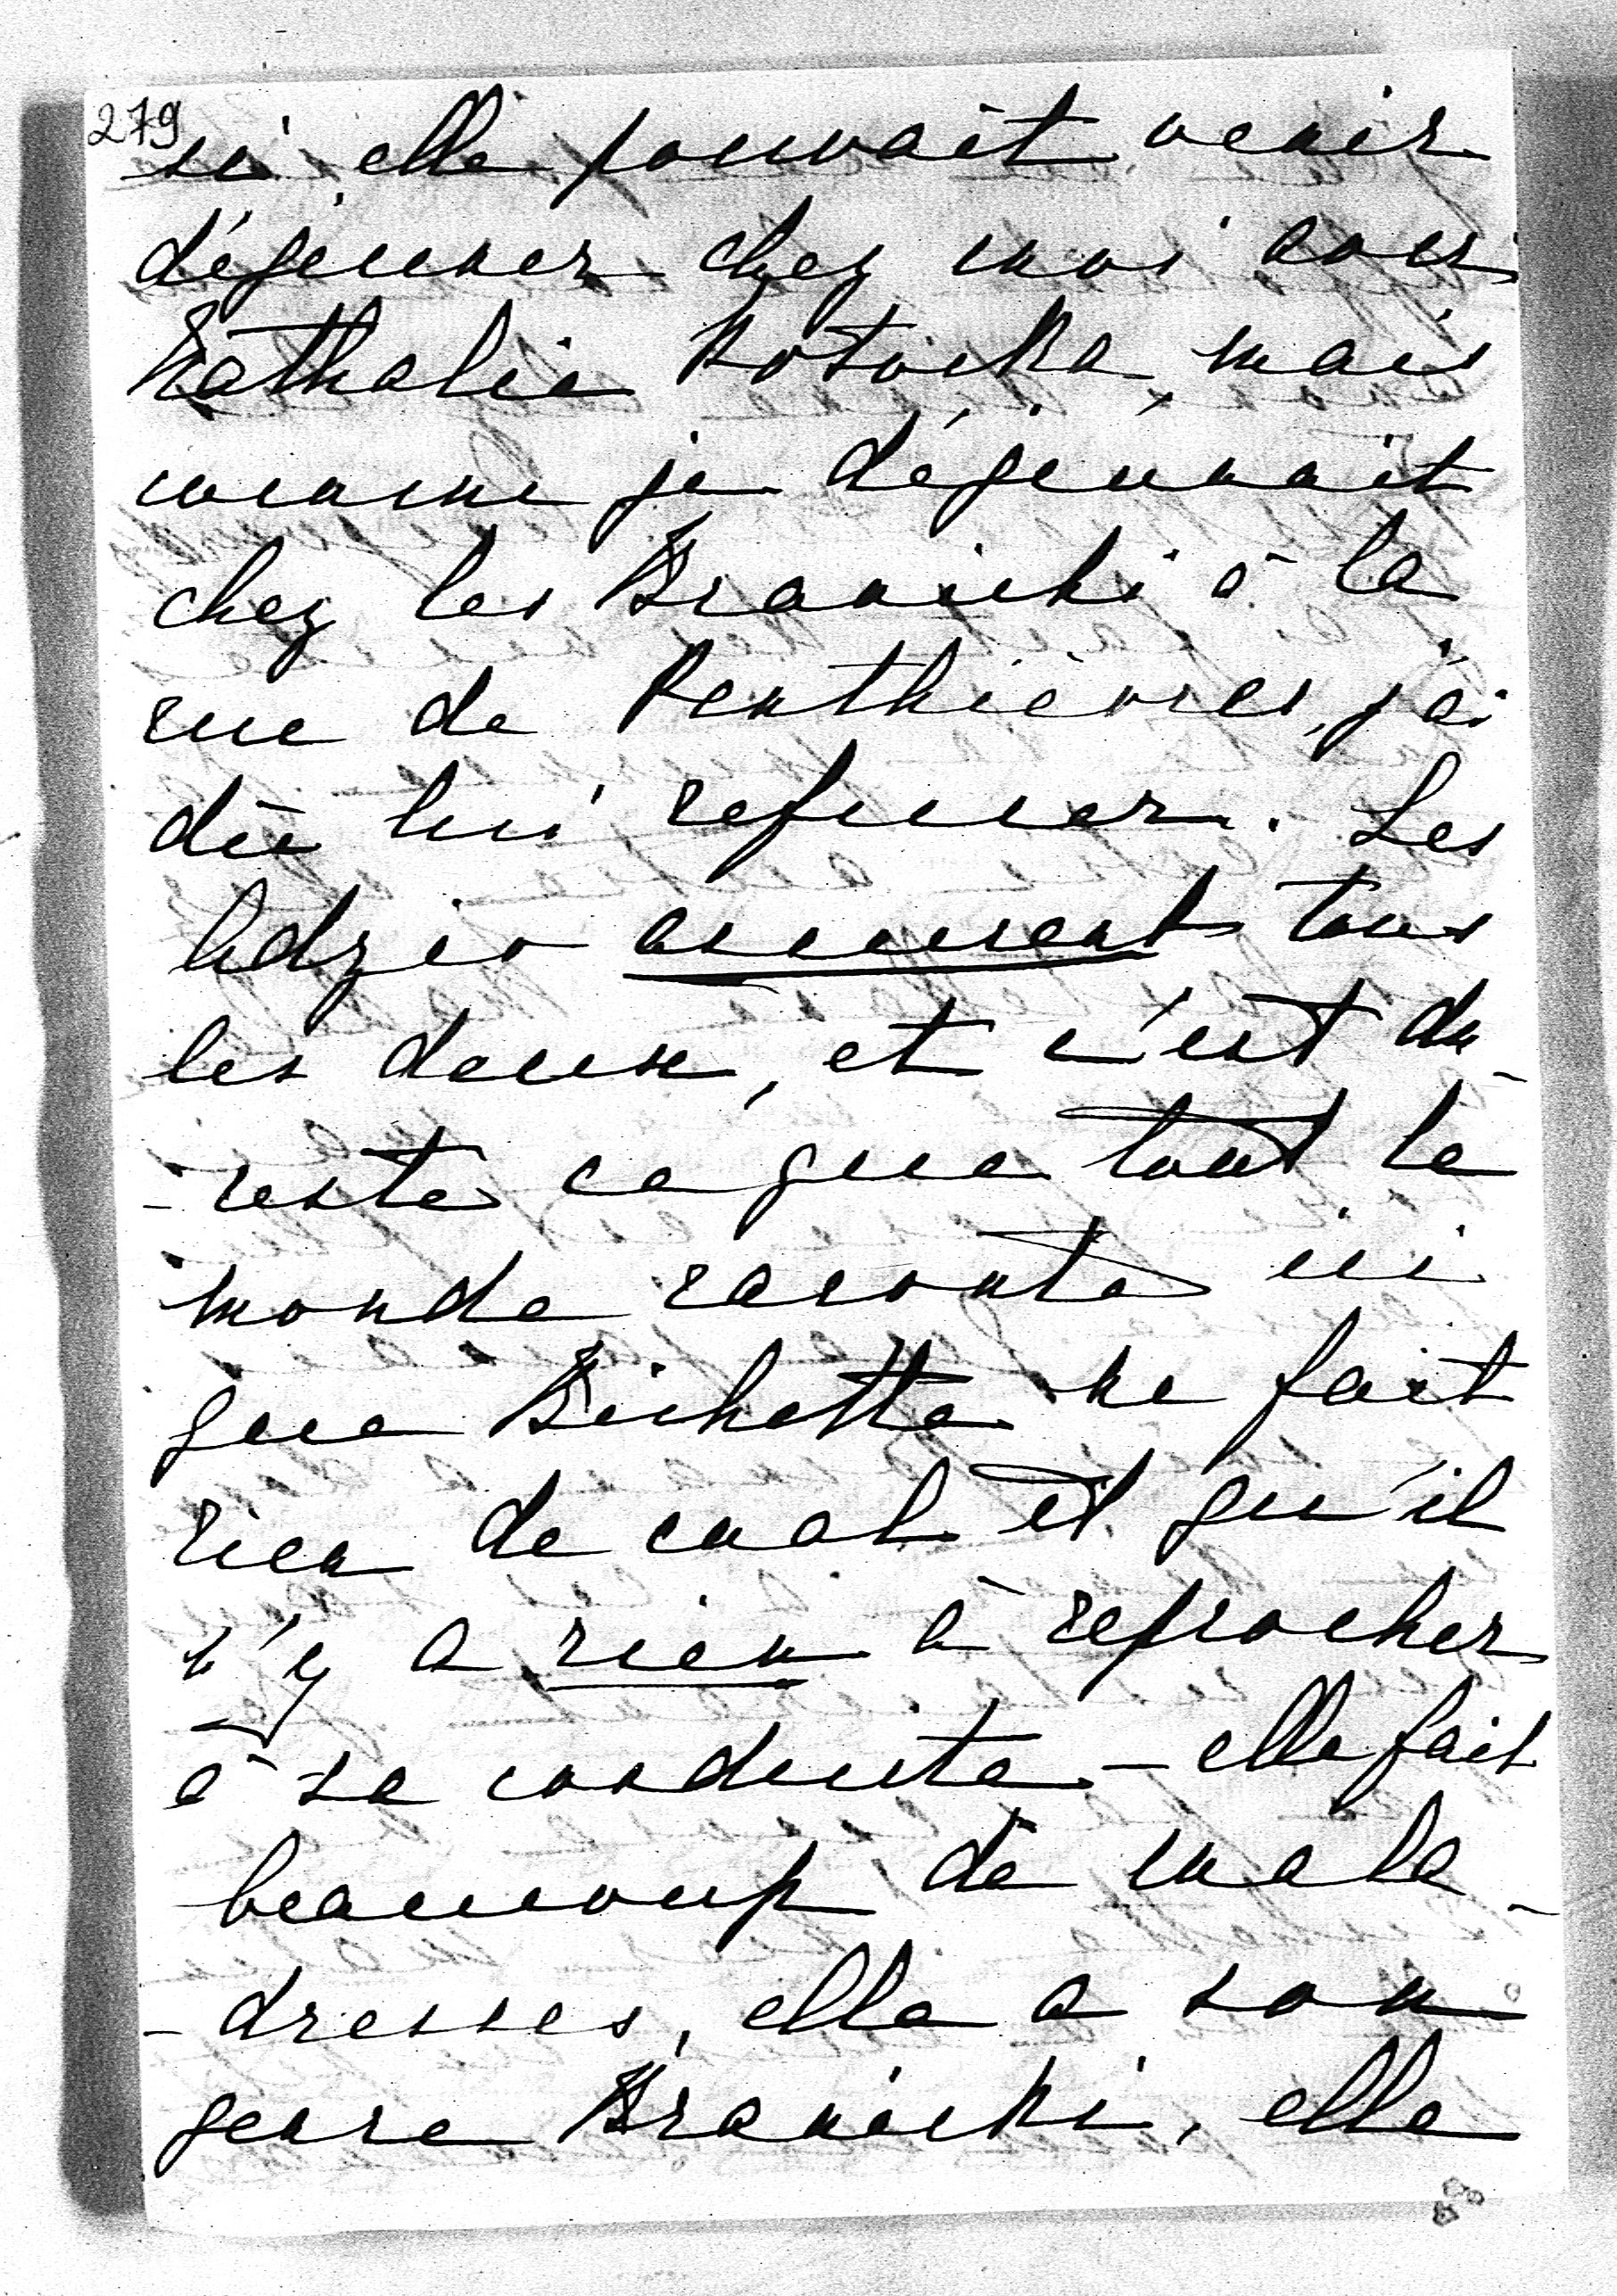 279
si elle pouvait venir
déjeuner chez moi avec
Nathalie Potocka, mais
comme je déjeunait
chez les Branicki à la
rue de Penthièvres, j'ai
dû lui refuser. Les
Adzio assurent tous
les deux, et c'est du-
-reste ce que tout le
monde raconte ici
que Bichette ne fait
rien de mal et qu'il
n'y a rien à reprocher
à sa conduite – elle fait
beaucoup de mala-
-dresses, elle a son
genre Branicki, elle